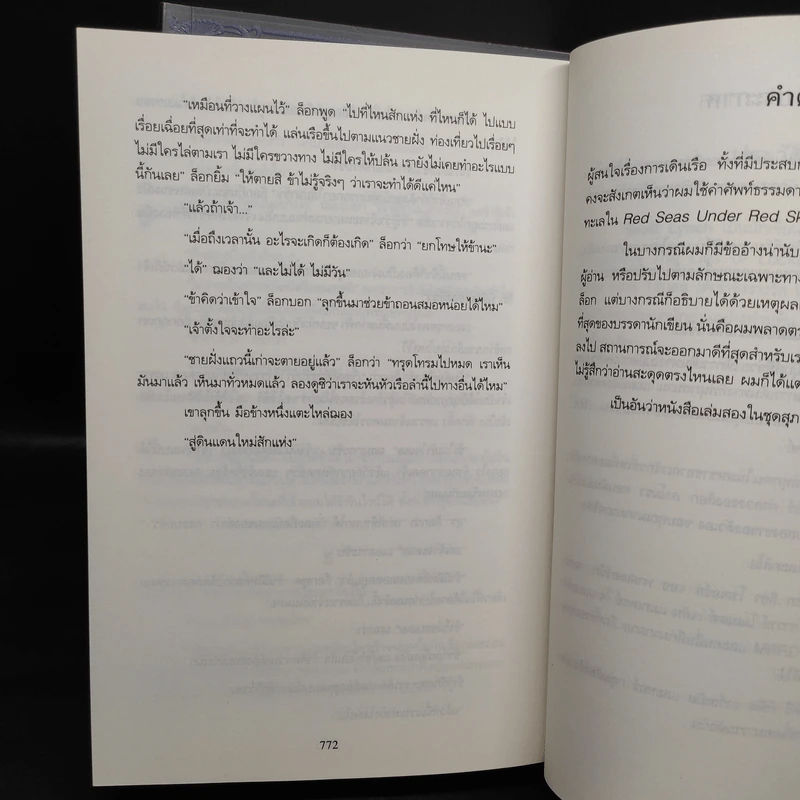 “เหมือนที่วางแผนไว้” ล็อกพูด “ไปที่ไหนสักแห่ง ที่ไหนก็ได้ ไปแบบ
เรื่อยเฉื่อยที่สุดเท่าที่จะทำได้ แล่นเรือขึ้นไปตามแนวชายฝั่ง ท่องเที่ยวไปเรื่อยๆ
ไม่มีใครไล่ตามเรา ไม่มีใครขวางทาง ไม่มีใครให้ปล้น เรายังไม่เคยทำอะไรแบบ
นี้กันเลย” ล็อกยิ้ม “ให้ตายสิ ข้าไม่รู้จริงๆ ว่าเราจะทำได้ดีแค่ไหน”
“แล้วถ้าเจ้า...”
“เมื่อถึงเวลานั้น อะไรจะเกิดก็ต้องเกิด” ล็อกว่า “ยกโทษให้ข้านะ”
“ได้” ฌองว่า “และไม่ได้ ไม่มีวัน”
“ข้าคิดว่าเข้าใจ” ล็อกบอก “ลุกขึ้นมาช่วยข้าถอนสมอหน่อยได้ไหม”
“เจ้าตั้งใจจะทำอะไรล่ะ”
“ชายฝั่งแถวนี้เก่าจะตายอยู่แล้ว” ล็อกว่า “ทรุดโทรมไปหมด เราเห็น
มันมาแล้ว เห็นมาทั่วหมดแล้ว ลองดูซิว่าเราจะหันหัวเรือลำนี้ไปทางอื่นได้ไหม”
เขาลุกขึ้น มือข้างหนึ่งแตะไหล่ฌอง
“สู่ดินแดนใหม่สักแห่ง”
772
ผู้สนใจเรื่องการเดินเรือ ทั้งที่มีประสบ
คงจะสังเกตเห็นว่าผมใช้คำศัพท์ธรรมดา
ทะเลใน Red Seas Under Red Sk
ในบางกรณีผมก็มีข้ออ้างน่านับ
ผู้อ่าน หรือปรับไปตามลักษณะเฉพาะทาง
ล็อก แต่บางกรณีก็อธิบายได้ด้วยเหตุผล
ที่สุดของบรรดานักเขียน นั่นคือผมพลาดตร
ลงไป สถานการณ์จะออกมาดีที่สุดสำหรับเร
ไม่รู้สึกว่าอ่านสะดุดตรงไหนเลย ผมก็ได้แต่
เป็นอันว่าหนังสือเล่มสองในชุดสุภ